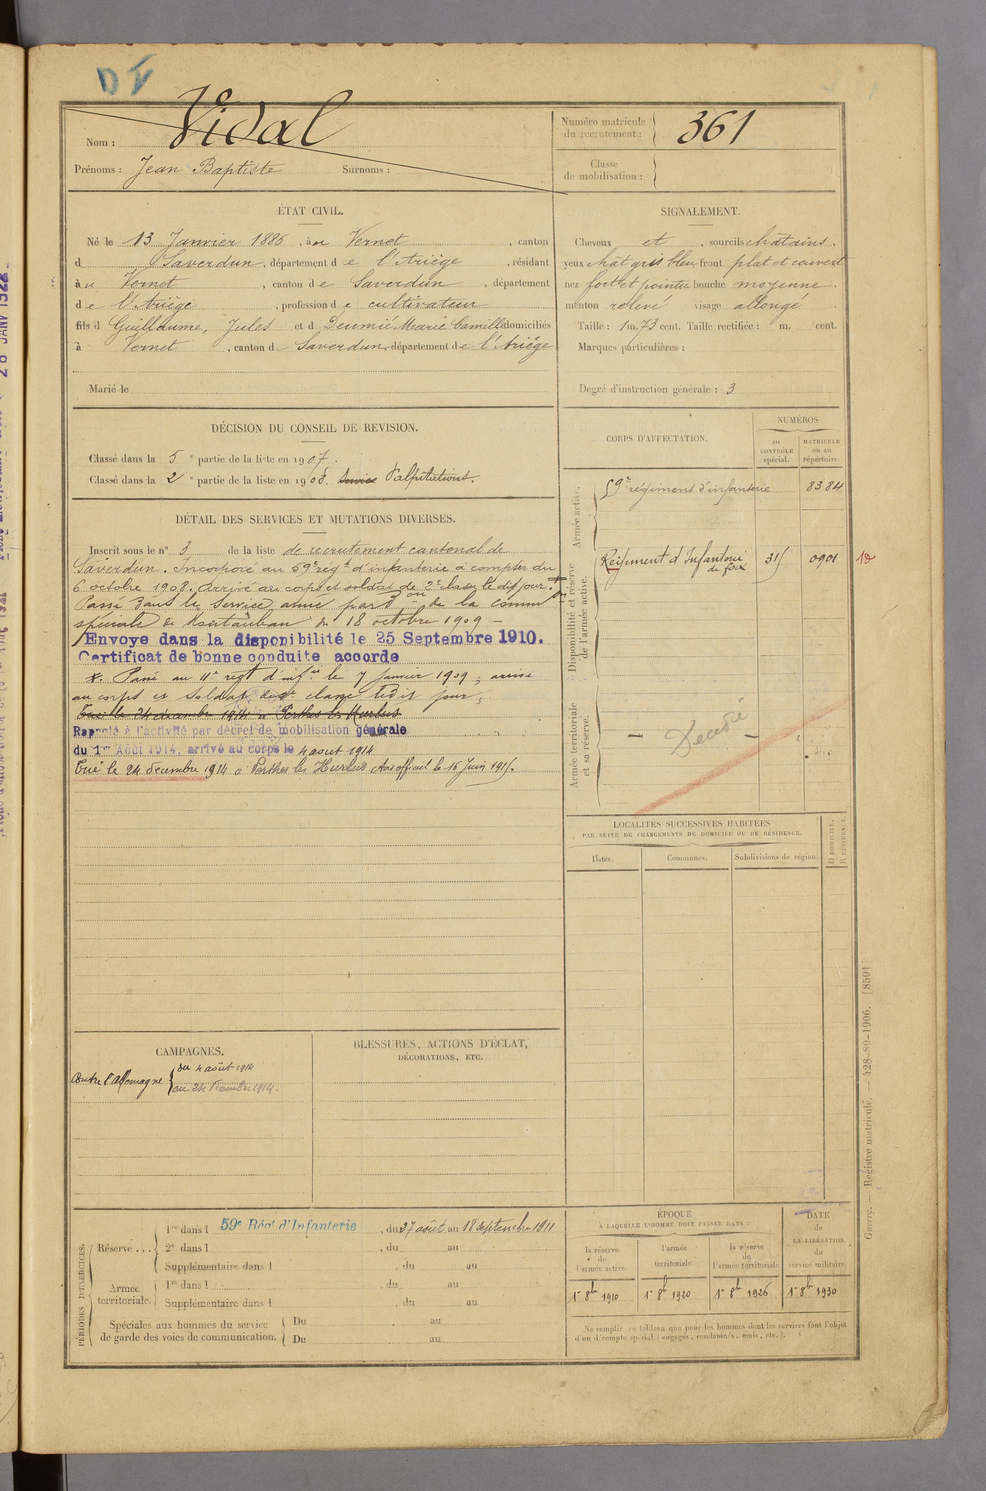 DV
Nom : Vidal
Prénoms : Jean Baptiste Surnoms :
Numéro matricule du recrutement : 361
Classe de mobilisation :
ÉTAT CIVIL.
Né le 13 Janvier 1886, à Vernet, canton
d Saverdun, département de l'Ariège, résidant
à Vernet, canton de Saverdun, département
de l'Ariège, profession de cultivateur
fils d Guillaume, Jules et d Deumié Marie Camille domiciliés
à Vernet, canton d Saverdun, département de l'Ariège
Marié le
SIGNALEMENT.
Cheveux et , sourcils châtains.
yeux chât gris bleu front plat et couvert
nez fort et pointu bouche moyenne.
menton relevé visage allongé
Taille : 1 m. 73 cent. Taille rectifiée : m. cent.
Marques particulières :
Degré d'instruction générale : 3
DÉCISION DU CONSEIL DE REVISION.
Classé dans la 5e partie de la liste en 1907.
Classé dans la 2e partie de la liste en 1908. Service Palpitations.
DÉTAIL DES SERVICES ET MUTATIONS DIVERSES.
Inscrit sous le n° 3 de la liste de recrutement cantonal de
Saverdun. Incorporé au 59e régt d'infanterie à compter du
6 octobre 1908. Arrivé au corps et soldat de 2e classe le dit jour.
Passé dans le service armé par don de la comm on
spéciale de Montauban du 18 octobre 1909 -
Envoyé dans la disponibilité le 25 Septembre 1910.
Certificat de bonne conduite accordé
x. Passé au 11e régt d'infie le 7 janvier 1909 ; arrivé
au corps et soldat de 2e classe ledit jour ;
Tué le 24 décembre 1914 à Perthes les Hurlus
Rappelé à l'activité par décret de mobilisation générale
du 1er Août 1914, arrivé au corps le 4 aout 1914
Tué le 24 decembre 1914 à Perthes les Hurlus Avis officiel le 16 Juin 1915.
CORPS D'AFFECTATION.
NUMÉROS
AU CONTRÔLE spécial.
MATRICULE ou au répertoire.
Armée active.
59e régiment d'infanterie 8384
Disponibilité et réserve de l'armée active.
Régiment d'Infanterie de Foix 315 0901 18
Armée territoriale et sa réserve.
Décédé
LOCALITÉS SUCCESSIVES HABITÉES
PAR SUITE DE CHANGEMENTS DE DOMICILE OU DE RÉSIDENCE.
Dates. Communes. Subdivisions de région. D DOMICILE. R RÉSIDENCE.
CAMPAGNES.
Contre l'Allemagne
du 4 août 1914
au 24 décembre 1914.
BLESSURES, ACTIONS D'ÉCLAT,
DÉCORATIONS, ETC.
PÉRIODES D'EXERCICES.
Réserve ...
1re dans l 59e Rég' d'Infanterie, du 27 août au 18 septembre 1911
2e dans l , du au
Supplémentaire dans l , du au
Armée territoriale.
1re dans l , du au
Supplémentaire dans l , du au
Spéciales aux hommes du service de garde des voies de communication.
Du au
Du au
ÉPOQUE
À LAQUELLE L'HOMME DOIT PASSER DANS :
la réserve de l'armée active.
l'armée territoriale.
la réserve de l'armée territoriale.
DATE de LA LIBÉRATION du service militaire.
1er 8bre 1910 1er 8bre 1920 1er 8bre 1926 1er 8bre 1930
Ne remplir ce tableau que pour les hommes dont les services font l'objet
d'un décompte spécial (engagés, condamnés, omis, etc.).
Guerre. — Registre matricule. — 428-89-1906. [8591]